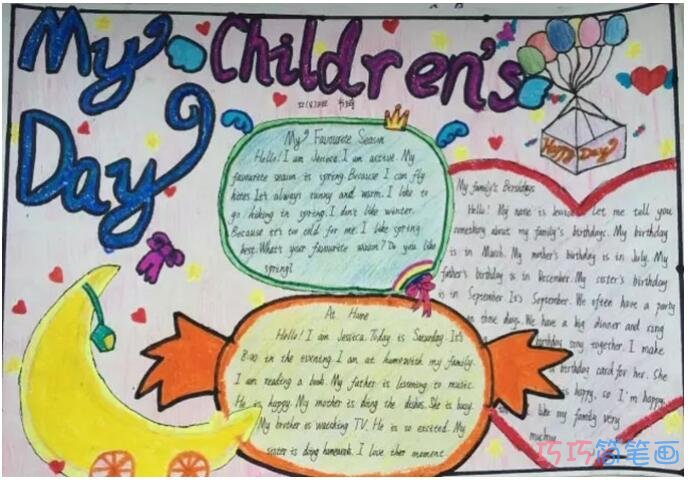 My Children's
Day
Happy Day
My Favourite Seaun
Hello! I am Jessica. I am active. My
favourite seaun is spring. Because I can fly
kites. It's always sunny and warm. I like to
go hiking in spring. I don't like winter.
Because it's too cold for me. I like spring
best. What's your favourite seaun? Do you like
spring?
My family's Birthdays
Hello! My name is Let me tell you
something about my family's birthdays. My birthday
is in March. My mother's birthday is in July. My
father's birthday is in December. My sister's birthday
is in September. It's September. We often have a party
on those days. We have a big dinner and sing
birthday song together. I make
a birthday card for her. She
is happy, so I'm happy,
I like my family very
much.
At Home
Hello! I am Jessica. Today is Saturday. It's
8:00 in the evening. I am at home with my family.
I am reading a book. My father is listening to music.
He is happy. My mother is doing the dishes. She is busy.
My brother is watching TV. He is so excited. My
sister is doing homework. I love this moment.
巧巧简笔画